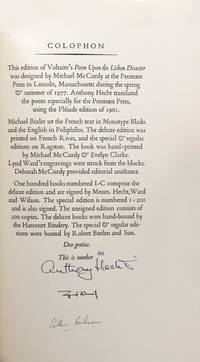 COLOPHON
This edition of Voltaire's Poem Upon the Lisbon Disaster
was designed by Michael McCurdy at the Penmæn
Press in Lincoln, Massachusetts during the spring
& summer of 1977. Anthony Hecht translated
the poem especially for the Penmæn Press,
using the Pléiade edition of 1961.
Michael Bixler set the French text in Monotype Blado
and the English in Poliphilus. The deluxe edition was
printed on French Rives, and the special & regular
editions on Ragston. The book was hand-printed
by Michael McCurdy & Evelyn Clarke.
Lynd Ward's engravings were struck from the blocks.
Deborah McCurdy provided editorial assistance.
One hundred books numbered I-C comprise the
deluxe edition and are signed by Messrs. Hecht, Ward
and Wilson. The special edition is numbered 1-200
and is also signed. The unsigned edition consists of
200 copies. The deluxe books were hand-bound by
the Harcourt Bindery. The special & regular edi-
tions were bound by Robert Burlen and Son.
Deo gratias.
This is number
Anthony Hecht